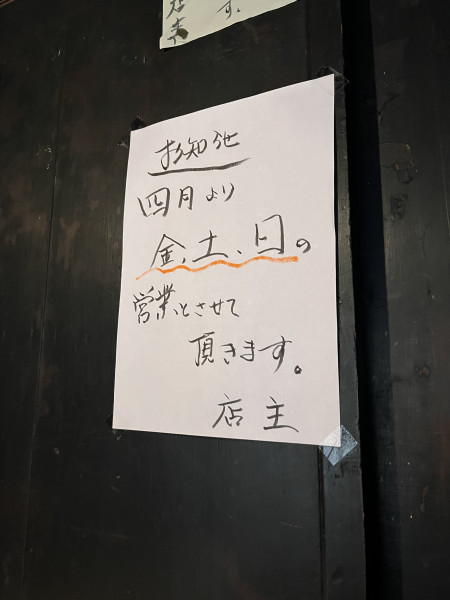 す。
店主
お知らせ
四月より
金、土、日の
営業とさせて
頂きます。
店主